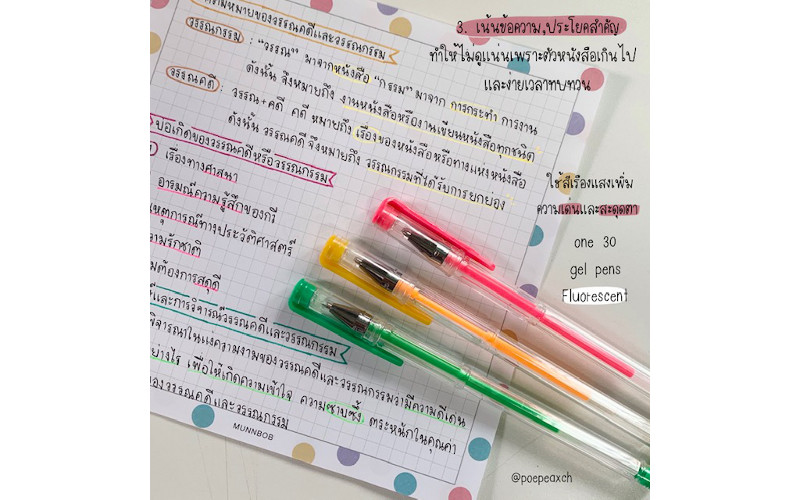 3. เน้นข้อความ,ประโยคสำคัญ
ทำให้ไม่ดูแน่นเพราะตัวหนังสือเกินไป
และง่ายเวลาทบทวน
ความหมายของวรรณคดีและวรรณกรรม
วรรณกรรม : "วรรณ" มาจากหนังสือ "กรรม" มาจาก การกระทำ การงาน
ดังนั้น จึงหมายถึง งานหนังสือหรืองานเขียนหนังสือทุกชนิด
วรรณคดี : วรรณ+คดี คดี หมายถึง เรื่องของหนังสือหรือทางแห่งหนังสือ
ดังนั้น วรรณคดี จึงหมายถึง วรรณกรรมที่ได้รับการยกย่อง
บ่อเกิดของวรรณคดีหรือวรรณกรรม
เรื่องทางศาสนา
อารมณ์ความรู้สึกของกวี
เหตุการณ์ทางประวัติศาสตร์
ความรักชาติ
ต้องการสดุดี
และการวิจารณ์วรรณคดีและวรรณกรรม
พิจารณาในแง่ความงามของวรรณคดีและวรรณกรรมว่ามีความดีเด่น
อย่างไร เพื่อให้เกิดความเข้าใจ ความซาบซึ้ง ตระหนักในคุณค่า
ของวรรณคดีและวรรณกรรม
MUNNBOB
ใช้สีเรืองแสงเพิ่ม
ความเด่นและสะดุดตา
one 30
gel pens
Fluorescent
@poepeaxch